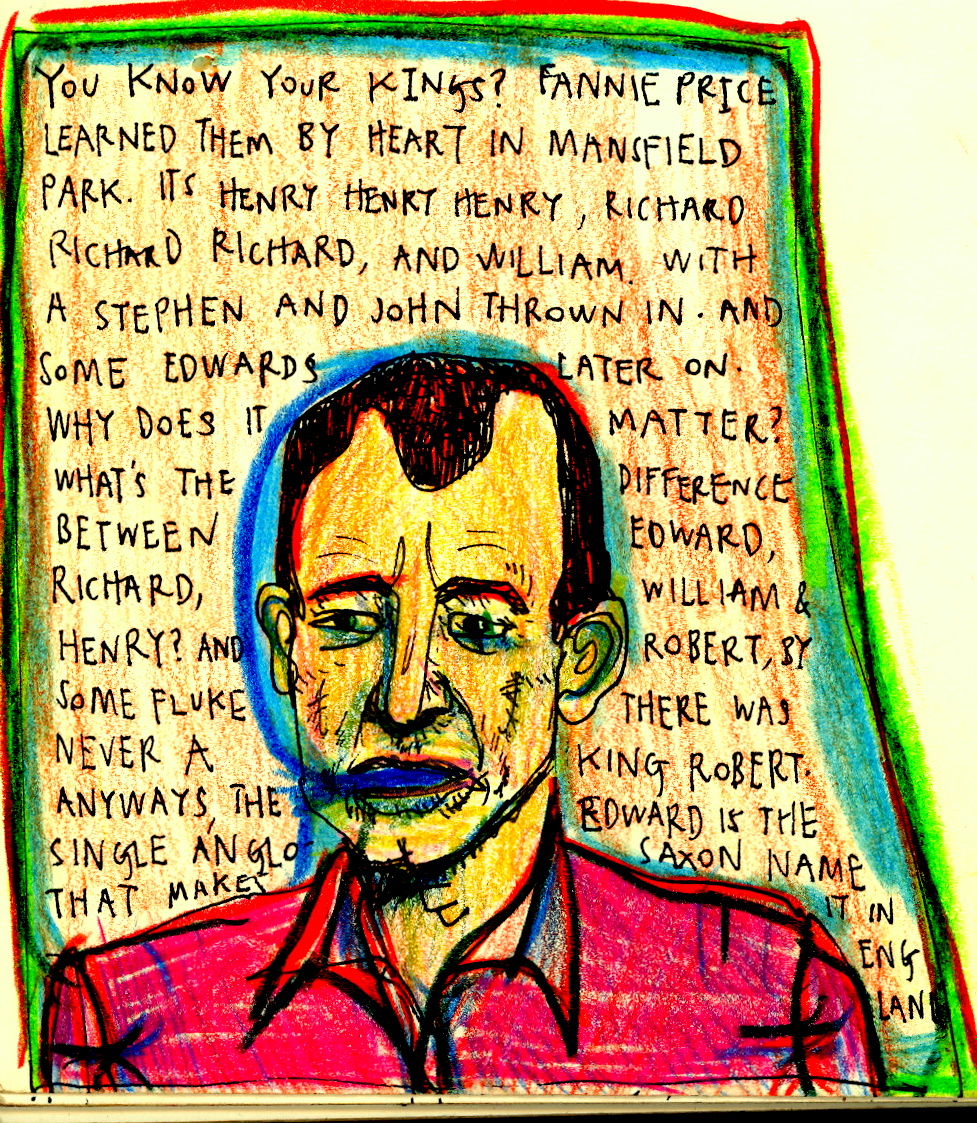 YOU KNOW YOUR KINGS? FANNIE PRICE
LEARNED THEM BY HEART IN MANSFIELD
PARK. ITS HENRY HENRY HENRY, RICHARD
RICHARD RICHARD, AND WILLIAM. WITH
A STEPHEN AND JOHN THROWN IN. AND
SOME EDWARDS LATER ON.
WHY DOES IT MATTER?
WHAT'S THE DIFFERENCE
BETWEEN EDWARD,
RICHARD, WILLIAM &
HENRY? AND ROBERT, BY
SOME FLUKE THERE WAS
NEVER A KING ROBERT.
ANYWAYS, THE EDWARD IS THE
SINGLE ANGLO- SAXON NAME
THAT MAKES IT IN
ENG
LAND